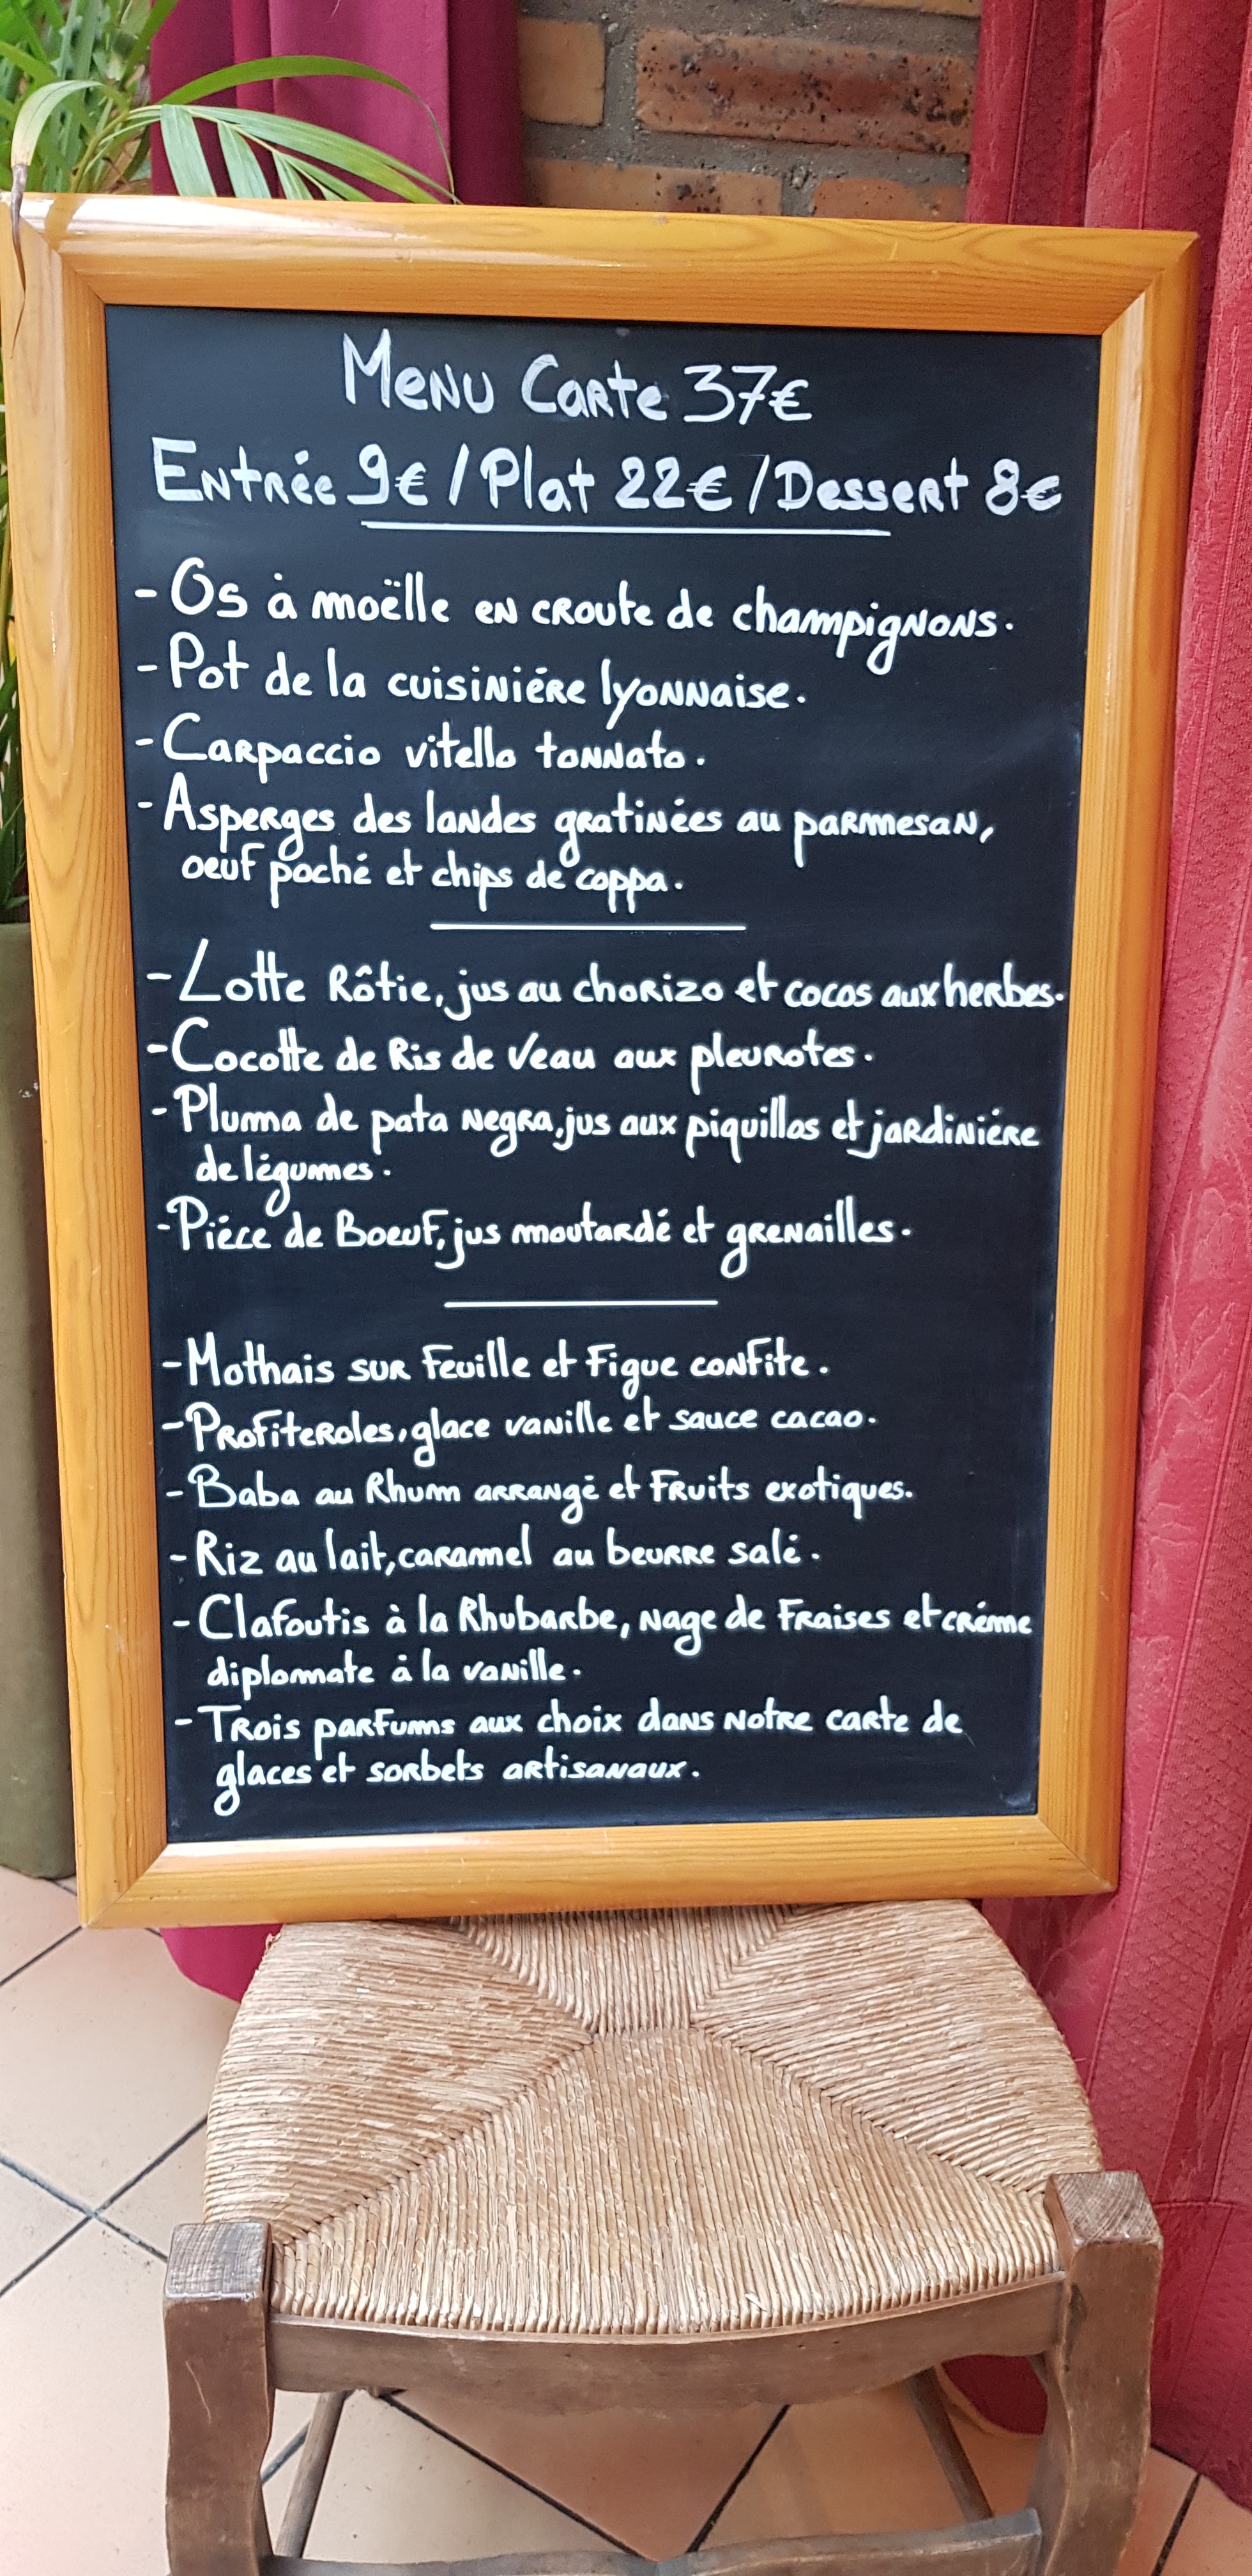 Menu Carte 37€
Entrée 9€ / Plat 22€ / Dessert 8€
- Os à moëlle en croute de champignons.
- Pot de la cuisiniére lyonnaise.
- Carpaccio vitello tonnato.
- Asperges des landes gratinées au parmesan,
oeuf poché et chips de coppa.
- Lotte Rôtie, jus au chorizo et cocos aux herbes.
- Cocotte de Ris de Veau aux pleurotes.
- Pluma de pata negra, jus aux piquillos et jardiniére
de légumes.
- Piéce de Boeuf, jus moutardé et grenailles.
- Mothais sur Feuille et Figue confite.
- Profiteroles, glace vanille et sauce cacao.
- Baba au Rhum arrangé et Fruits exotiques.
- Riz au lait, caramel au beurre salé.
- Clafoutis à la Rhubarbe, nage de Fraises et créme
diplomate à la vanille.
- Trois parfums aux choix dans notre carte de
glaces et sorbets artisanaux.